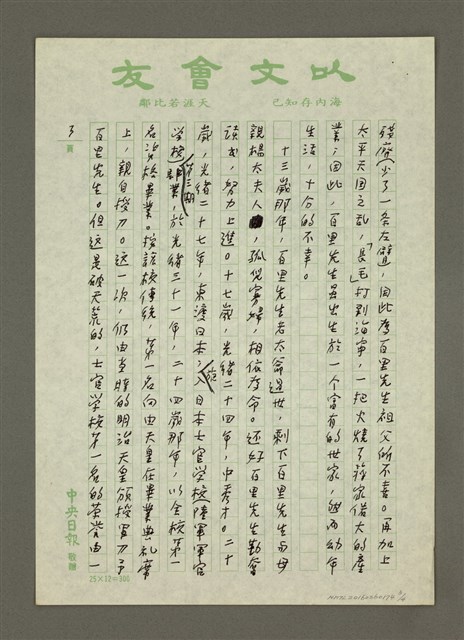 以文會友
海內存知己
天涯若比鄰
殘廢少了一條左腿,因此為百里先生祖父所不喜。再加上
太平天國之亂,「長毛」打到海寧,一把火燒了蔣家偌大的產
業,因此,百里先生虽出生於一个富有的世家,

生活,十分的不幸。
十三歲那年,百里先生老太爺逝世,剩下百里先生與母
親楊太夫人,孤兒寡婦,相依为命。还好百里先生勤奮
讀書,努力上進。十七歲,光緒二十四年,中秀才。二十
歲,光緒二十七年,東渡日本,入日本士官学校陸軍軍官
学校第三期畢業,於光緒三十一年,二十四歲那年,以全校第一
名的成績畢業。按該校傳統,第一名向由天皇在畢業典礼席
上,親自授刀。这一次,仍由当時的明治天皇頒授軍刀予
百里先生。但这是破天荒的,士官学校第一名的荣誉由一
3 頁
中央日報 敬贈
25×12=300